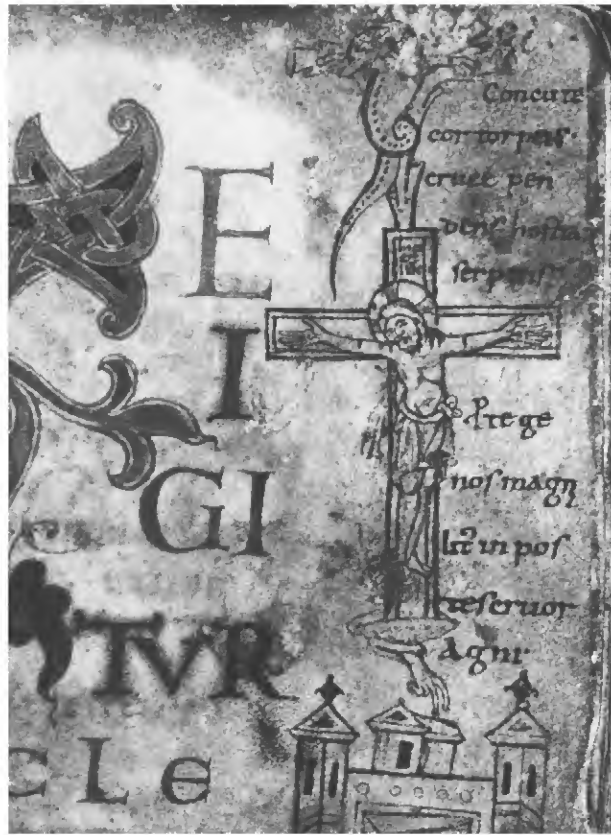 E
I
GI
TVR
CLe
Concute
cor torpens
cruce pen
dens
serpens
Prege
nos magn
in pos
te seruor
Agni